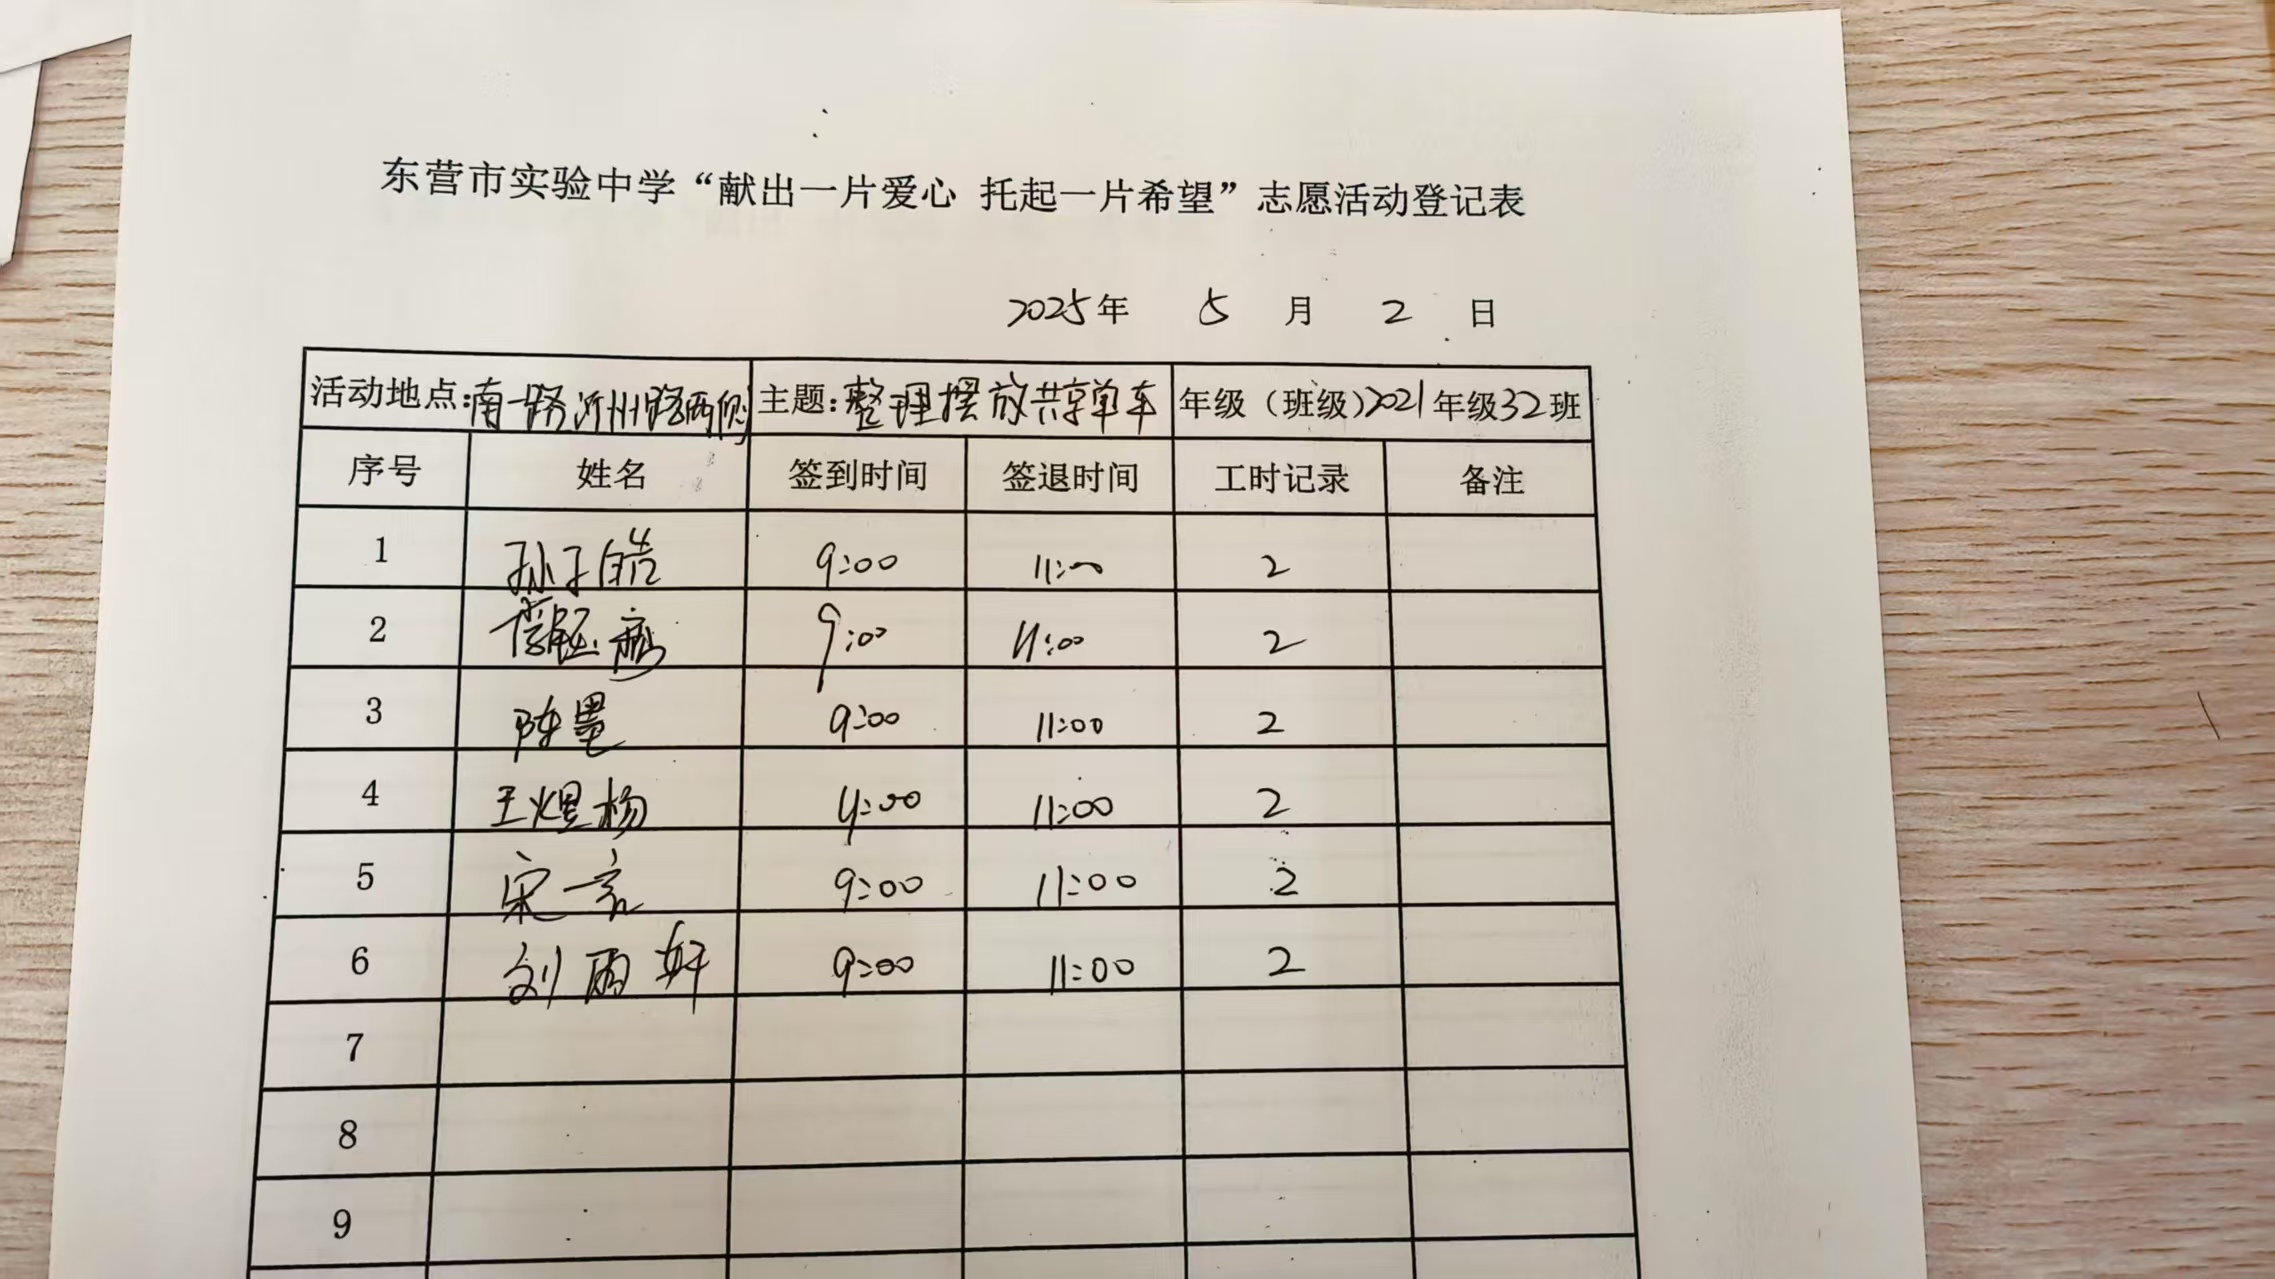 东营市实验中学“献出一片爱心 托起一片希望”志愿活动登记表
2025年 5 月 2 日
活动地点:南一路沂州路两侧 主题:整理摆放共享单车 年级（班级)2021年级32班
序号 姓名 签到时间 签退时间 工时记录 备注
1 孙子皓 9:00 11:00 2
2 9:00 11:00 2
3 陈墨 9:00 11:00 2
4 王煜杨 9:00 11:00 2
5 宋一言 9:00 11:00 2
6 刘雨轩 9:00 11:00 2
7
8
9